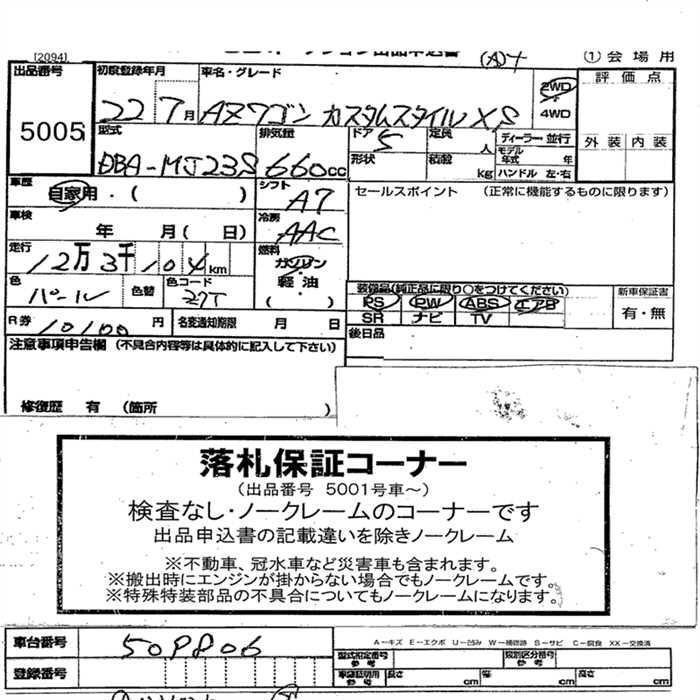 [2094]
出品申込書
① 会場用
出品番号 初度登録年月 車名・グレード 2WD 4WD 評価点
5005 22 7月 AZワゴン カスタムスタイル XS
型式 排気量 ドア 5 定員 人 ディーラー・並行 外装 内装
DBA-MJ23S 660cc 形状 積載 kg モデル年式 年 ハンドル 左・右
車歴 自家用・( ) シフト A7 セールスポイント (正常に機能するものに限ります)
車検 年 月( 日) 冷房 AAC
走行 12万3千104km 燃料 ガソリン 軽油 ( )
色 パール 色替 色コード Z7T
装備品(純正品に限り○をつけてください) 新車保証書
PS PW ABS エアB 有・無
SR ナビ TV
R券 10100円 名変通知期限 月 日 後日品
注意事項申告欄 (不具合内容等は具体的に記入して下さい)
修復歴 有 (箇所 )
落札保証コーナー
(出品番号 5001号車~)
検査なし・ノークレームのコーナーです
出品申込書の記載違いを除きノークレーム
※不動車、冠水車など災害車も含まれます。
※搬出時にエンジンが掛からない場合でもノークレームです。
※特殊特装部品の不具合についてもノークレームになります。
車台番号 509806
A-キズ E-エクボ U-凹み W-補修跡 S-サビ C-腐食 XX-交換済
型式指定番号 参考 類別区分番号 参考
登録番号 車袋証明用 参考 長さ cm 幅 cm 高さ cm